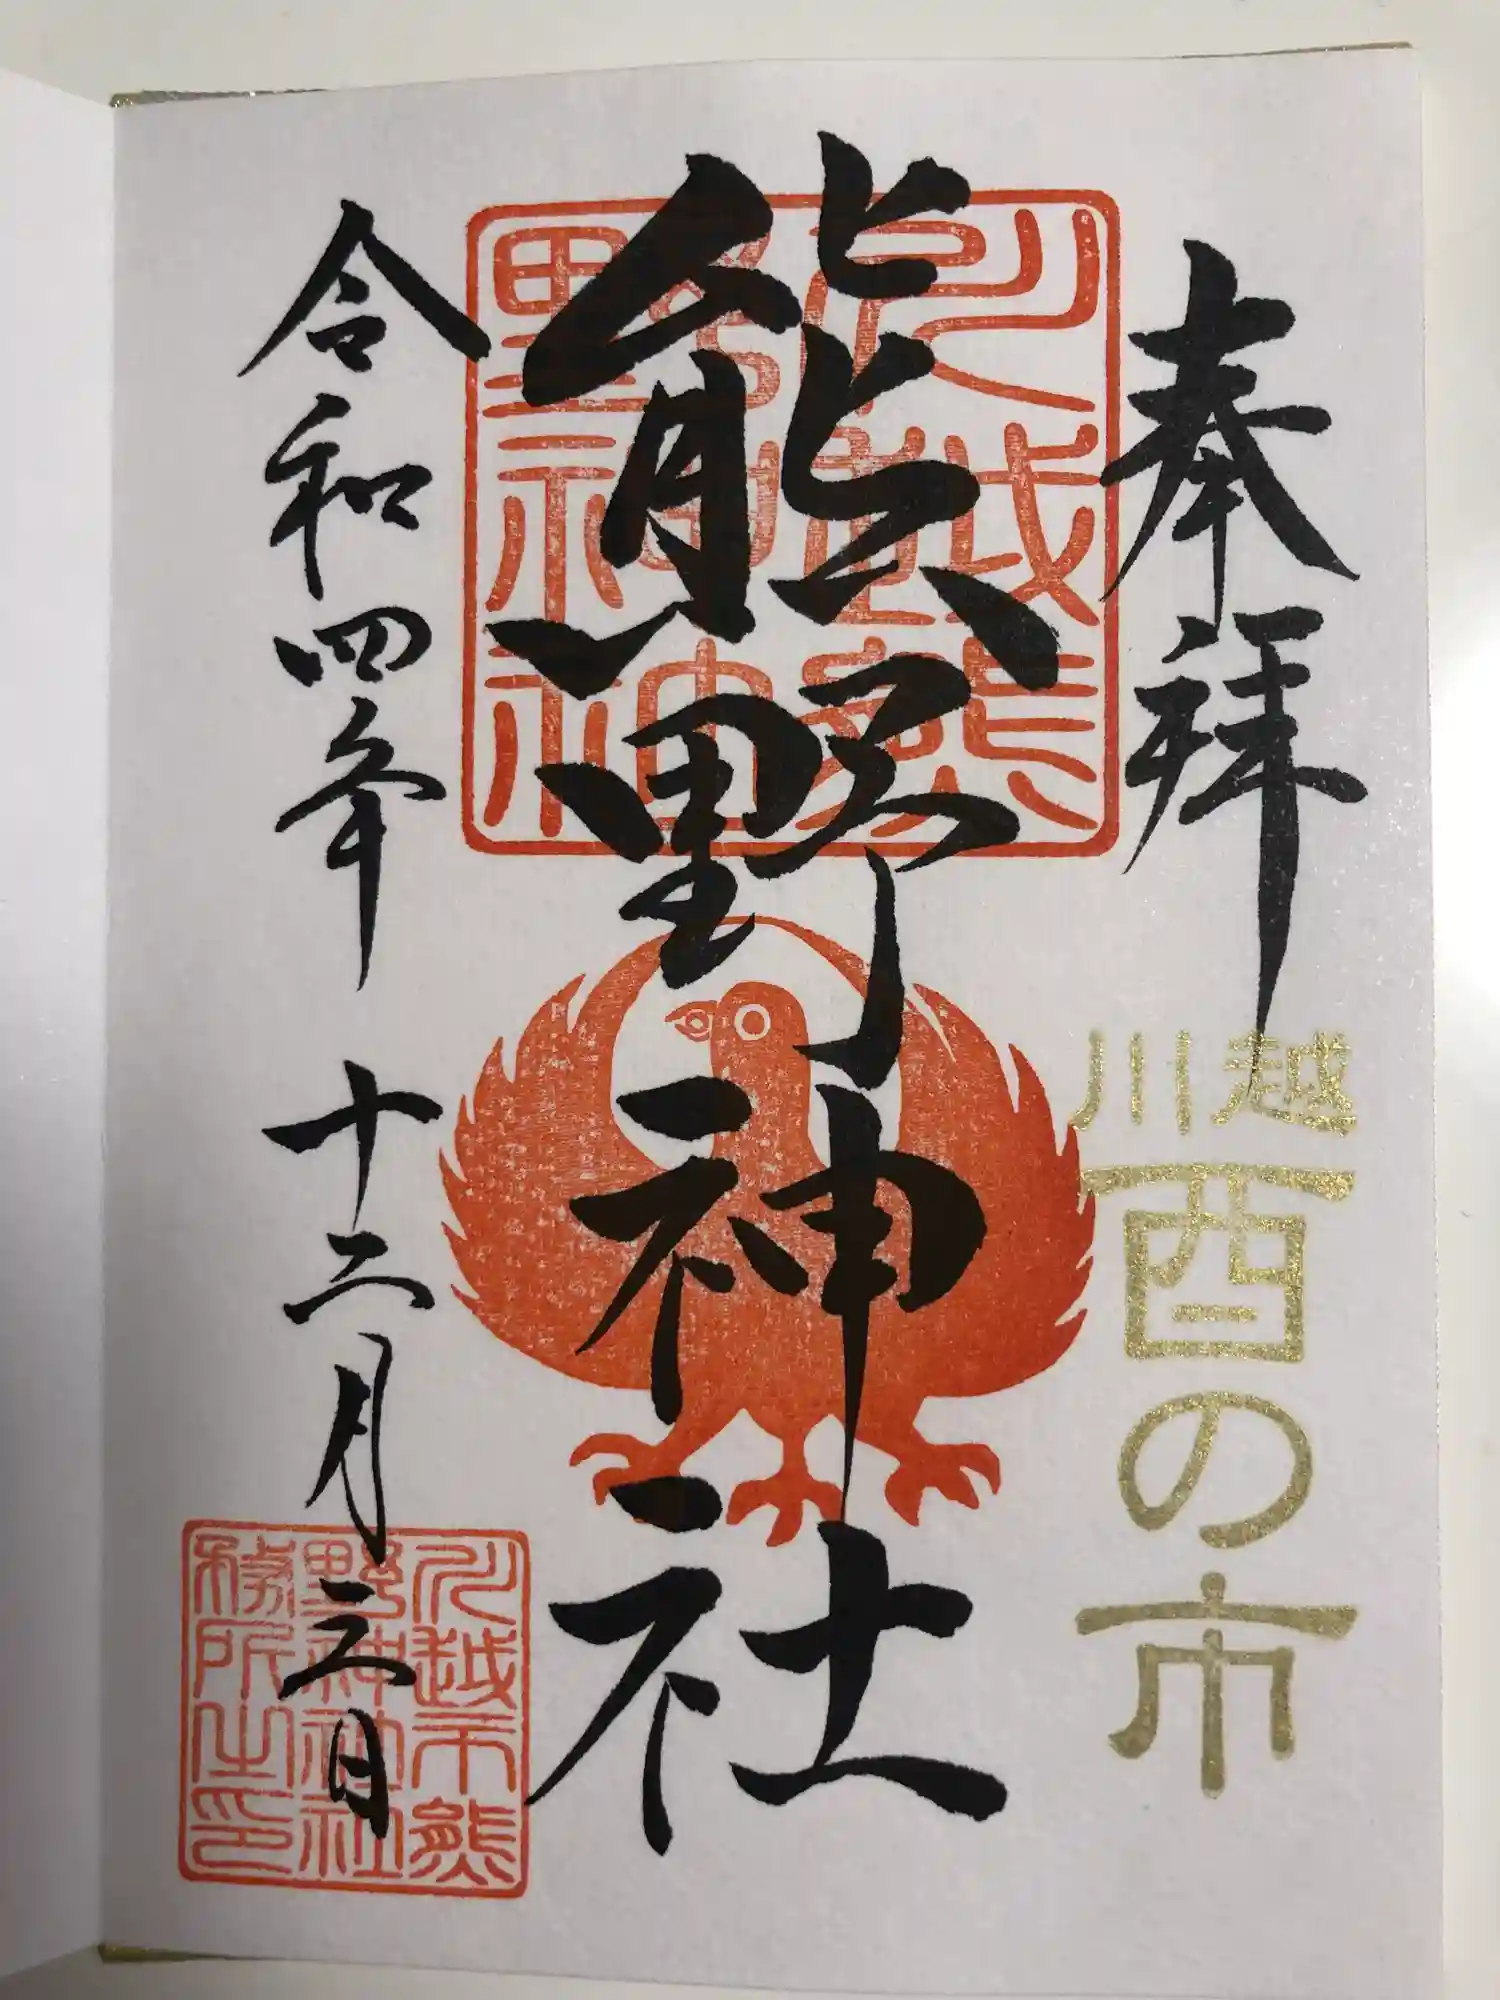 奉拝
川越
酉の市
川越熊
野神社
熊野神社
令和四年 十二月三日
川越市熊
野神社社
務所之印